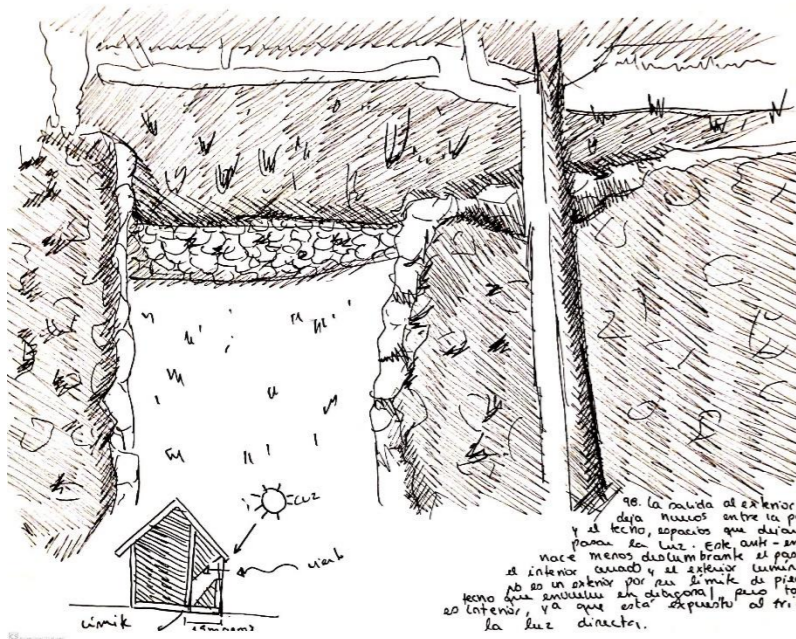 LUZ
vient
límite
98. La salida al exterior
deja nuevos entre la p
y el techo, espacios que dejan
pasar la luz. Este ante-en
hace menos deslumbrante el pas
el interior y el exterior lumin
no es un exterior por su límite de pie
techo que envuelve en diagonal, pero ta
es interior, ya que está expuesto al frí
la luz directa.